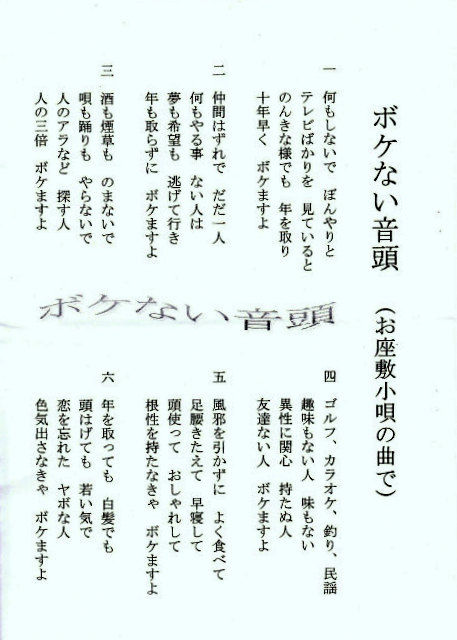 ボケない音頭　（お座敷小唄の曲で）
一　何もしないで　ぼんやりと
テレビばかりを　見ていると
のんきな様でも　年を取り
十年早く　ボケますよ
二　仲間はずれで　だだ一人
何もやる事　ない人は
夢も希望も　逃げて行き
年も取らずに　ボケますよ
三　酒も煙草も　のまないで
唄も踊りも　やらないで
人のアラなど　探す人
人の三倍　ボケますよ
ボケない音頭
四　ゴルフ、カラオケ、釣り、民謡
趣味もない人　味もない
異性に関心　持たぬ人
友達ない人　ボケますよ
五　風邪を引かずに　よく食べて
足腰きたえて　早寝して
頭使って　おしゃれして
根性を持たなきゃ　ボケますよ
六　年を取っても　白髪でも
頭はげても　若い気で
恋を忘れた　ヤボな人
色気出さなきゃ　ボケますよ